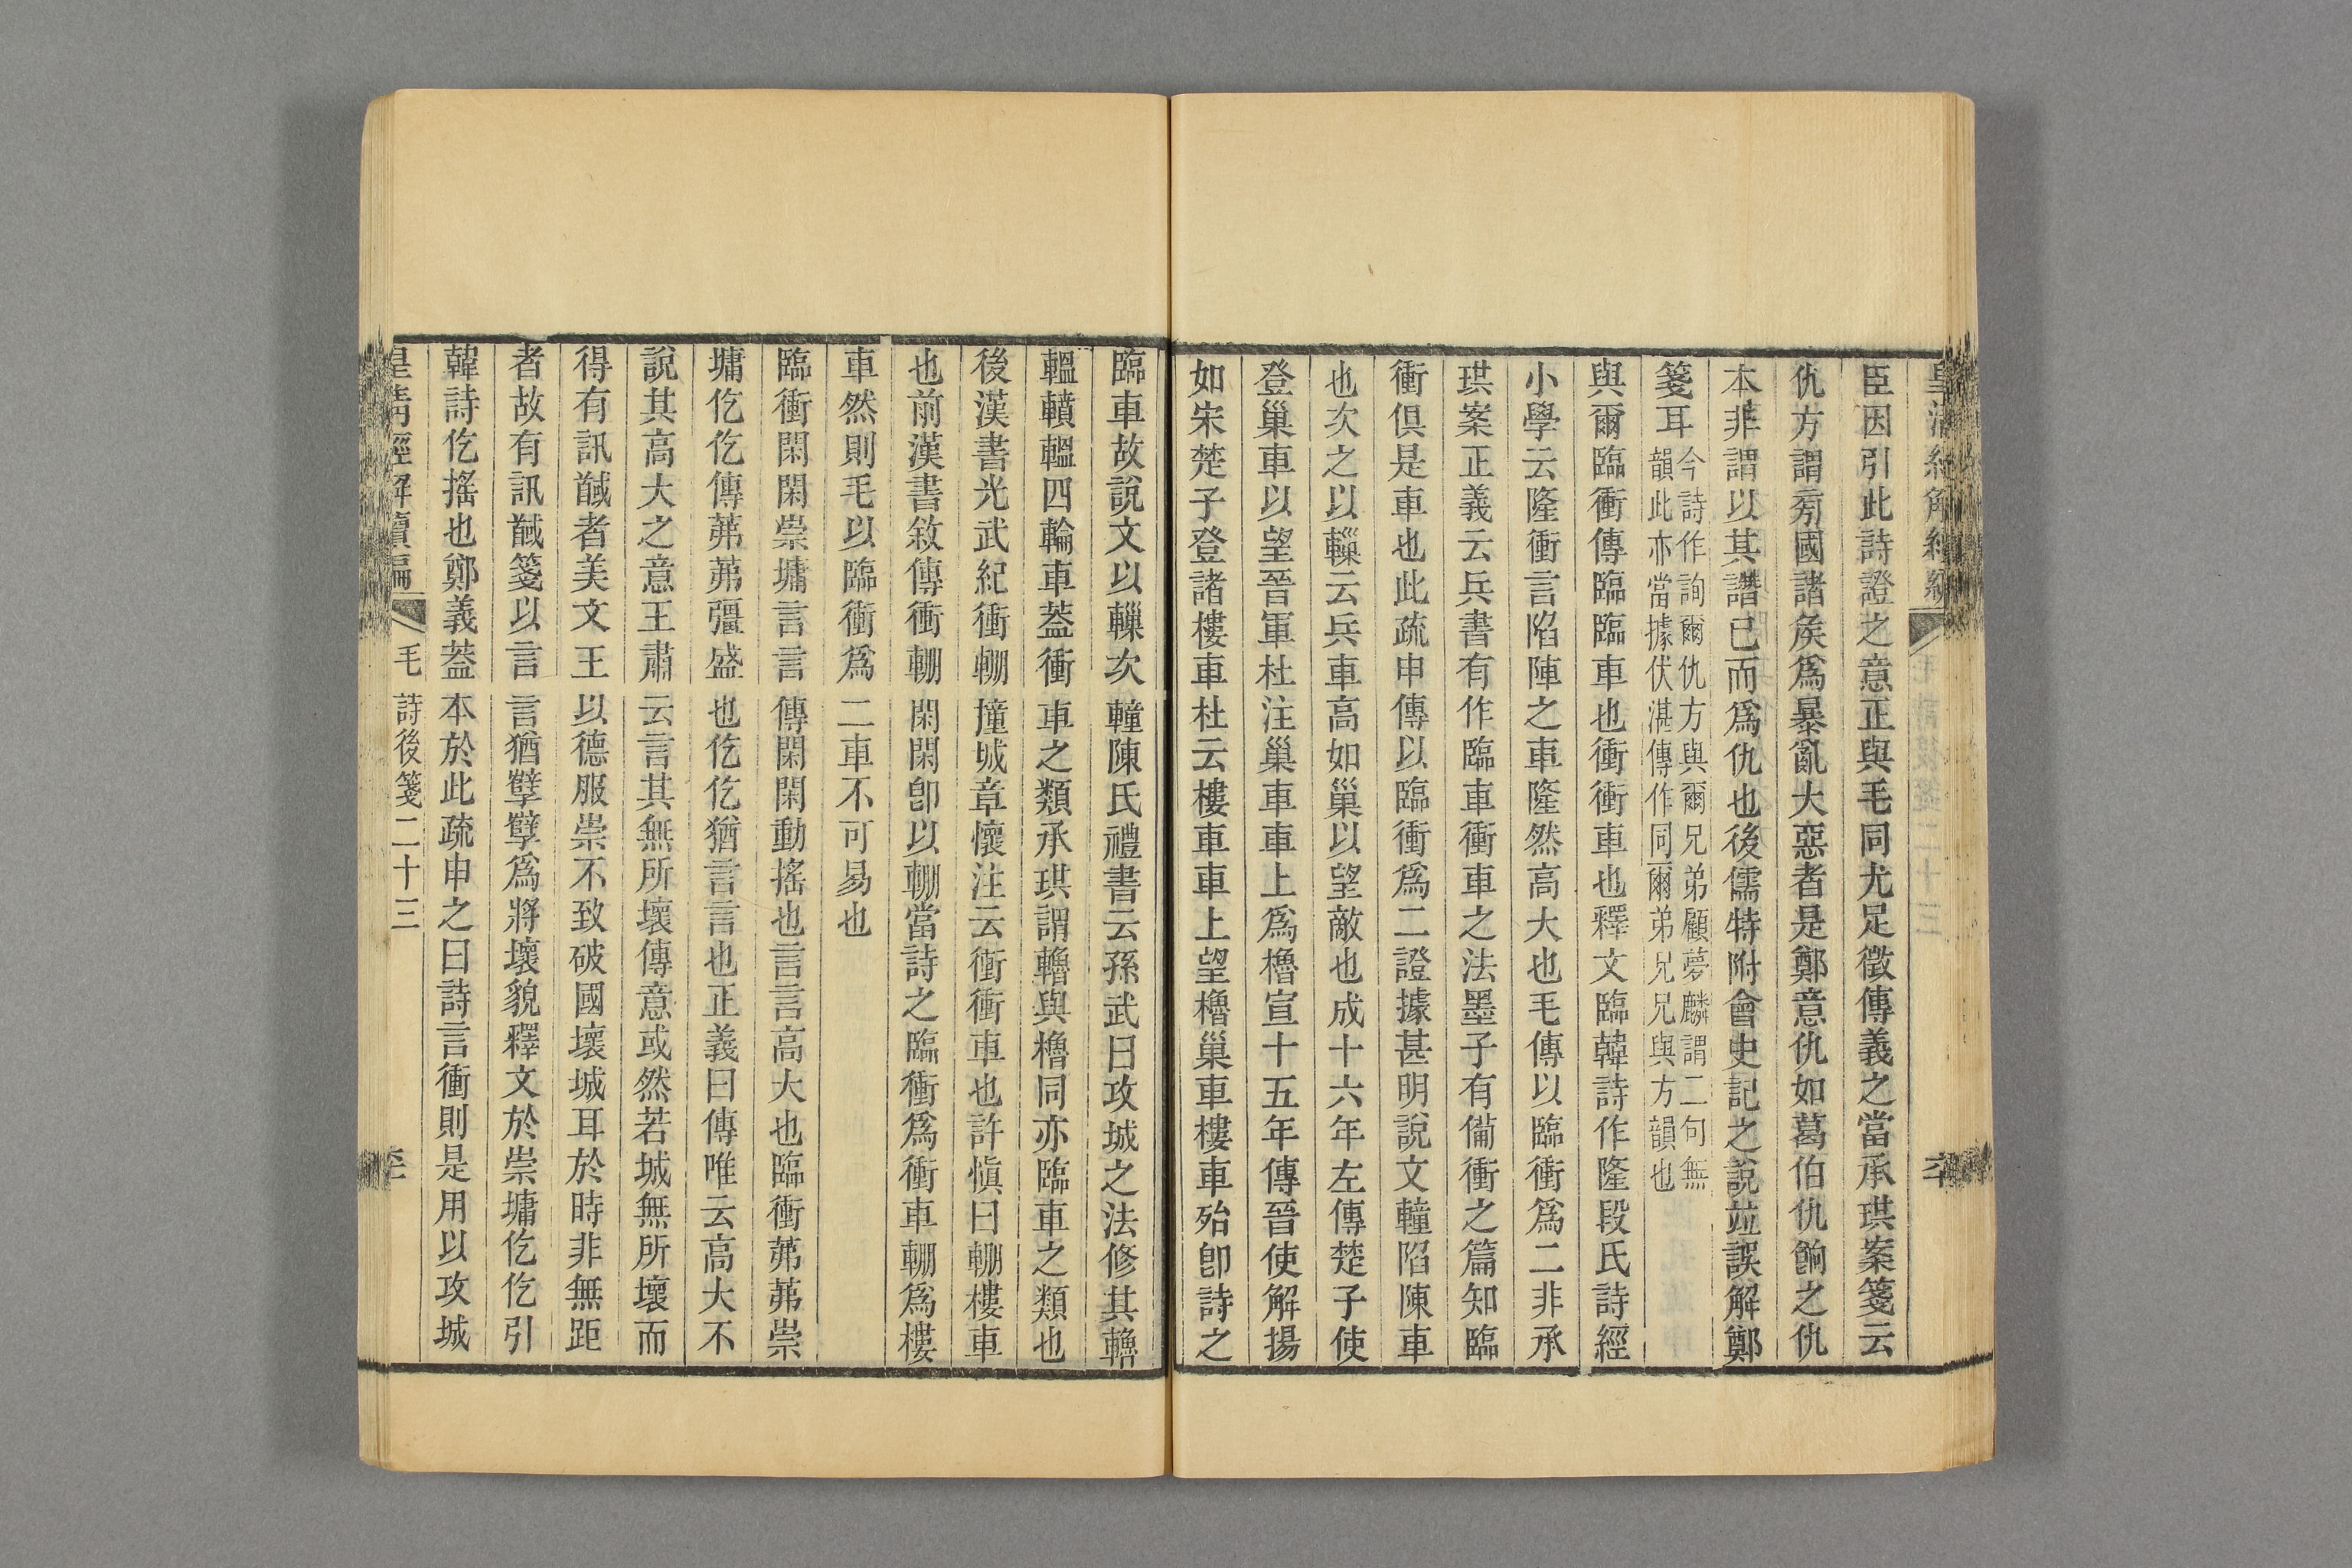 臣因引此詩證之意正與毛同尤足徵傳義之當承珙案箋云
仇方謂㫄國諸矦爲暴亂大惡者是鄭意仇如葛伯仇餉之仇
本非謂以其譖己而爲仇也後儒特附會史記之說竝誤解鄭
箋耳
今詩作詢爾仇方與爾兄弟顧夢麟謂二句無
韻此亦當據伏湛傳作同爾弟兄兄與方韻也
與爾臨衝傳臨臨車也衝衝車也釋文臨韓詩作隆段氏詩經
小學云隆衝言陷陣之車隆然高大也毛傳以臨衝爲二非承
珙案正義云兵書有作臨車衝車之法墨子有備衝之篇知臨
衝俱是車也此疏申傳以臨衝爲二證據甚明說文䡴陷陳車
也次之以轈云兵車高如巢以望敵也成十六年左傳楚子使
登巢車以望晉軍杜注巢車車上爲櫓宣十五年傳晉使解揚
如宋楚子登諸樓車杜云樓車車上望櫓巢車樓車殆卽詩之
臨車故說文以轈次䡴陳氏禮書云孫武曰攻城之法修其轒
轀轒轀四輪車葢衝車之類承珙謂轒與櫓同亦臨車之類也
後漢書光武紀衝輣撞城章懷注云衝衝車也許愼曰輣樓車
也前漢書敘傳衝輣閑閑卽以輣當詩之臨衝爲衝車輣爲樓
車然則毛以臨衝爲二車不可易也
臨衝閑閑崇墉言言傳閑閑動搖也言言高大也臨衝茀茀崇
墉仡仡傳茀茀彊盛也仡仡猶言言也正義曰傳唯云高大不
說其高大之意王肅云言其無所壞傳意或然若城無所壞而
得有訊馘者美文王以德服崇不致破國壞城耳於時非無距
者故有訊馘箋以言言猶孽孽爲將壞貌釋文於崇墉仡仡引
韓詩仡搖也鄭義葢本於此疏申之曰詩言衝則是用以攻城
皇清經解續編 毛詩後箋二十三